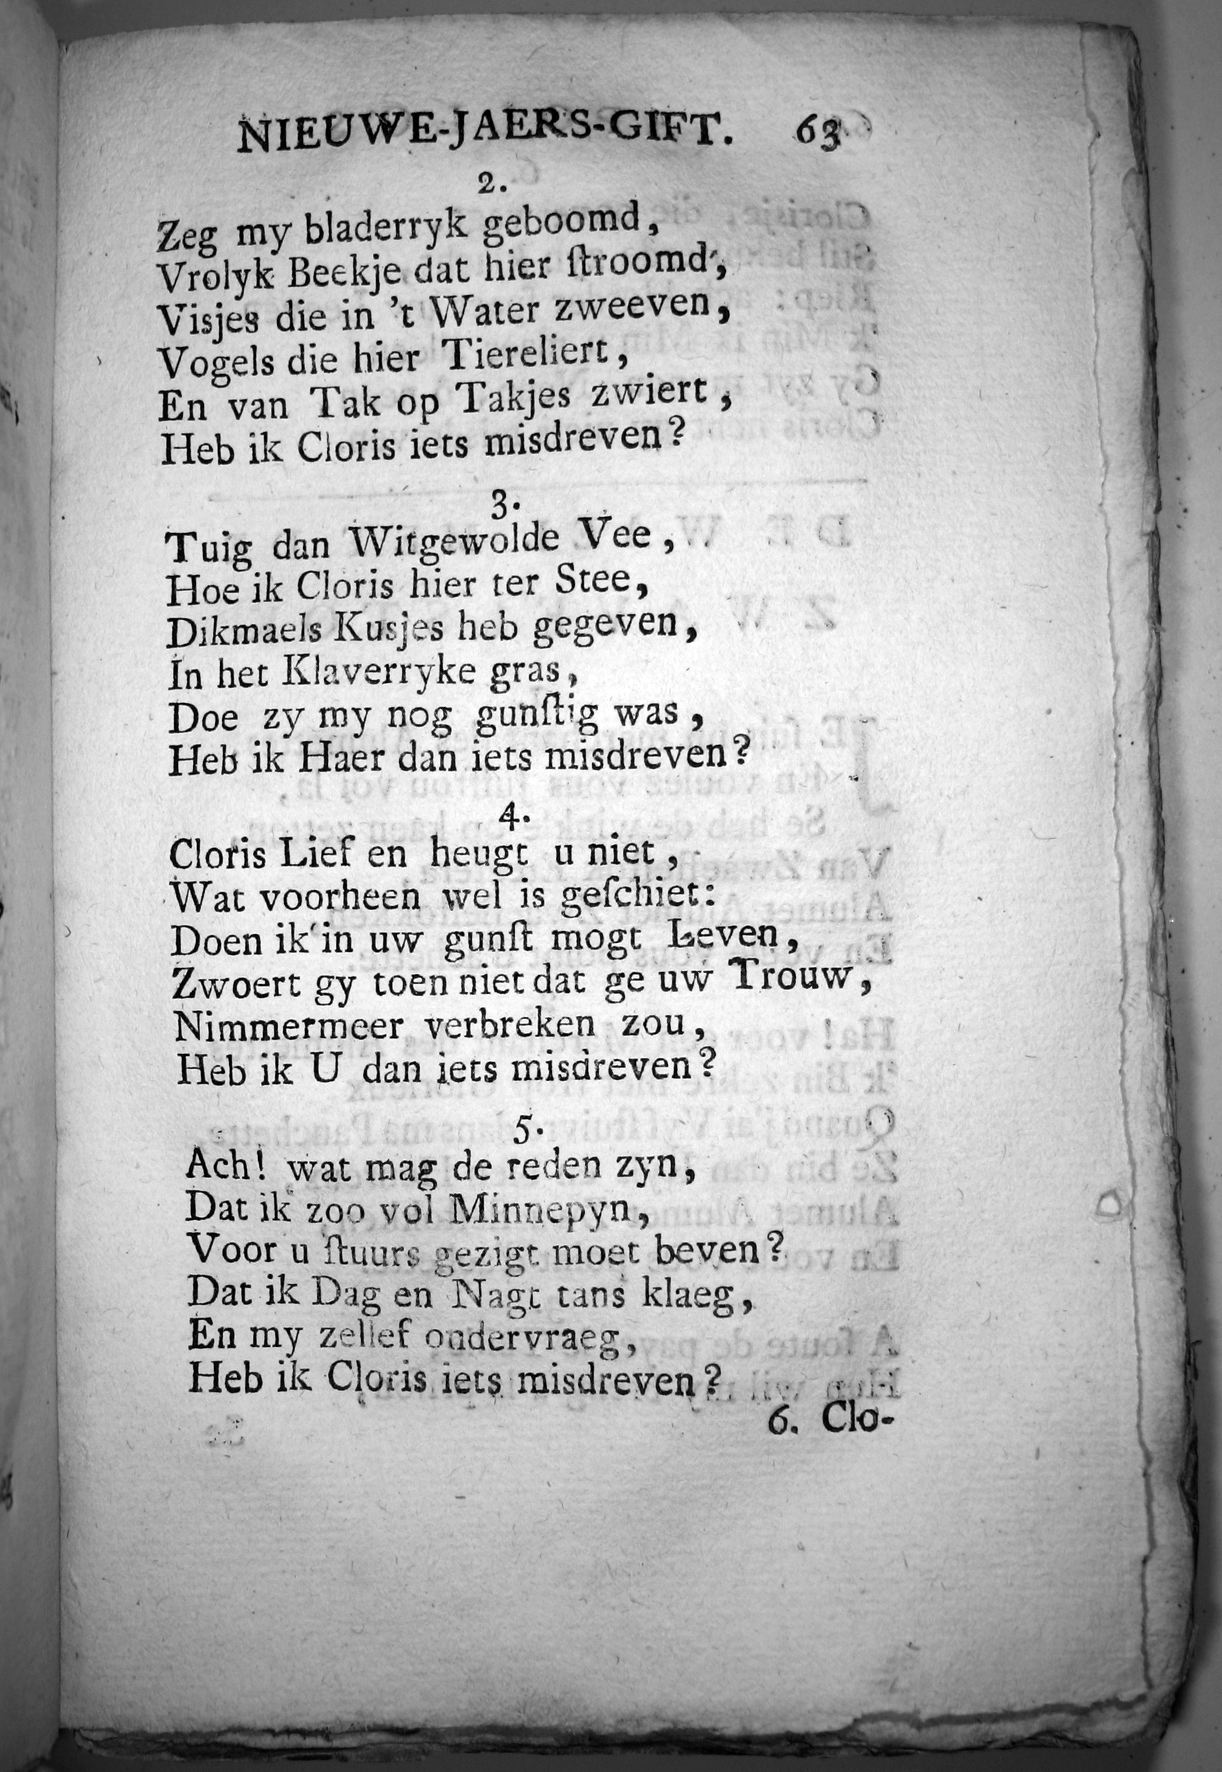 NIEUWE-JAERS-GIFT. 63
2.
Zeg my bladerryk geboomd,
Vrolyk Beekje dat hier ſtroomd,
Visjes die in 't Water zweeven,
Vogels die hier Tiereliert,
En van Tak op Takjes zwiert,
Heb ik Cloris iets misdreven?
3.
Tuig dan Witgewolde Vee,
Hoe ik Cloris hier ter Stee,
Dikmaels Kusjes heb gegeven,
In het Klaverryke gras,
Doe zy my nog gunſtig was,
Heb ik Haer dan iets misdreven?
4.
Cloris Lief en heugt u niet,
Wat voorheen wel is geſchiet:
Doen ik in uw gunſt mogt Leven,
Zwoert gy toen niet dat ge uw Trouw,
Nimmermeer verbreken zou,
Heb ik U dan iets misdreven?
5.
Ach! wat mag de reden zyn,
Dat ik zoo vol Minnepyn,
Voor u ſtuurs gezigt moet beven?
Dat ik Dag en Nagt tans klaeg,
En my zellef ondervraeg,
Heb ik Cloris iets misdreven?
6. Clo-